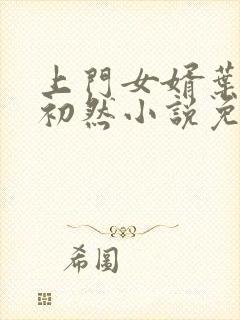 上門女婿葉
初然小説免
希圖